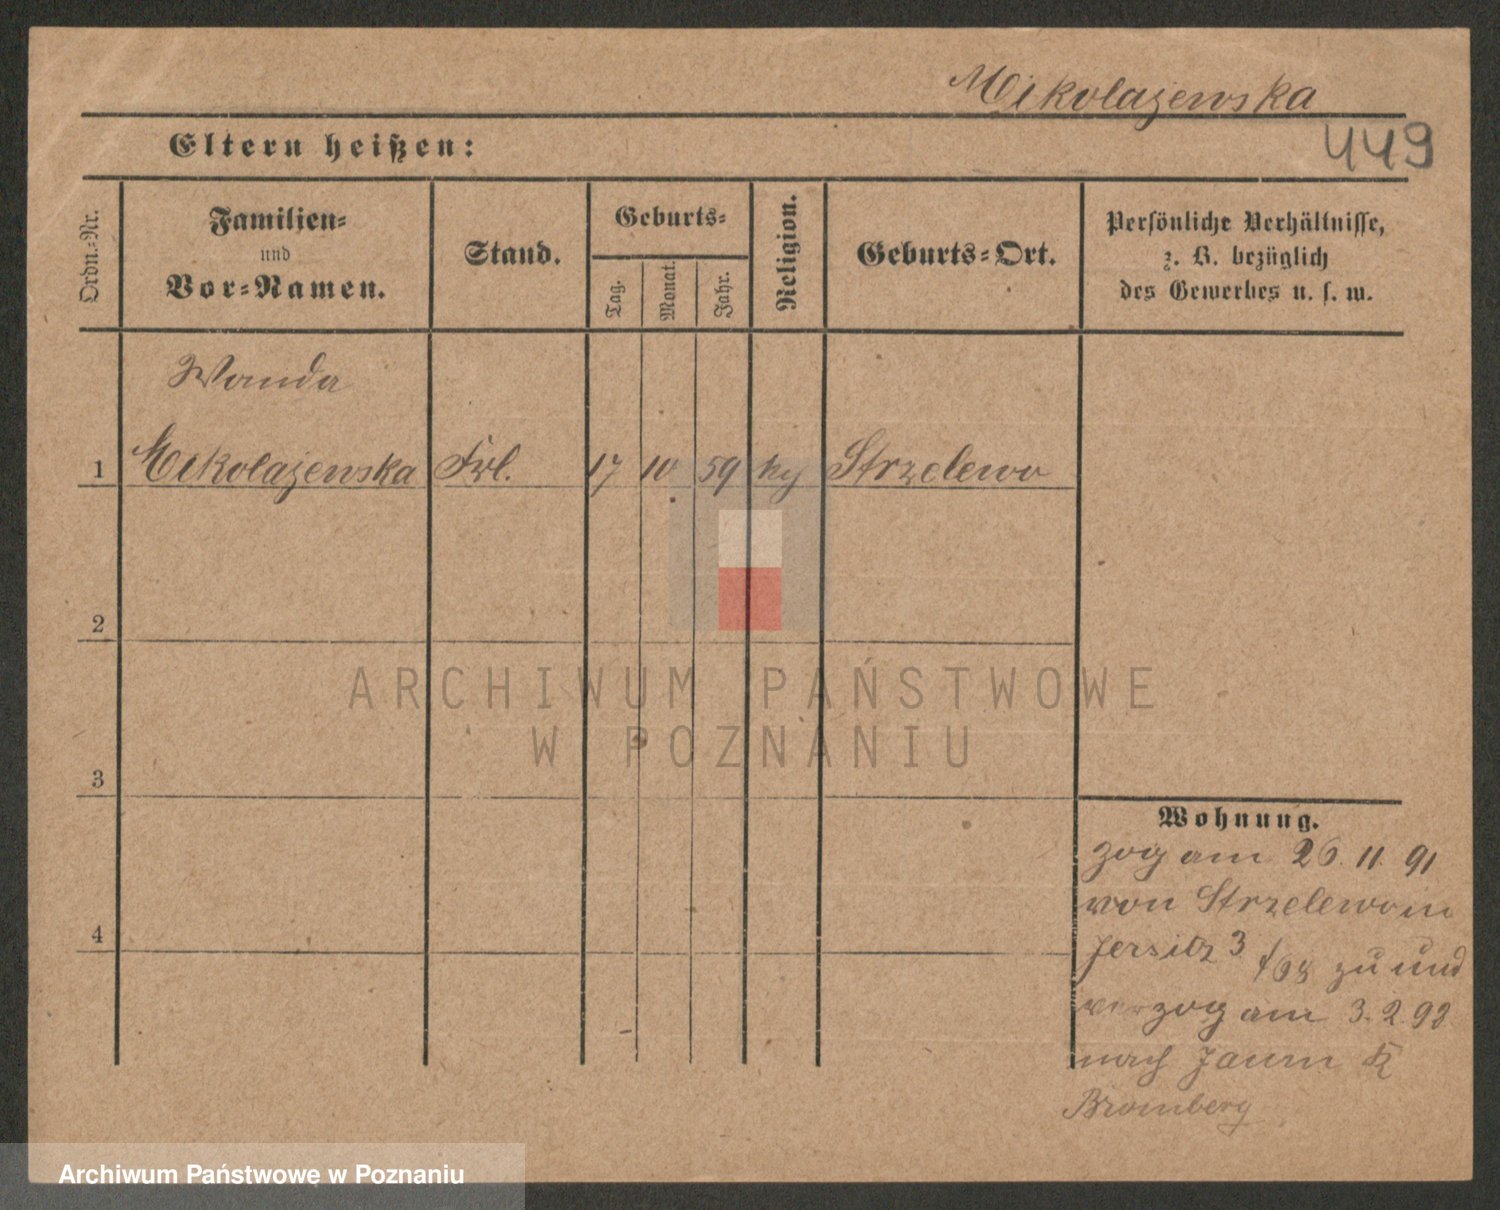 Mikolajewska
449
Eltern heißen:
Ordn.-Nr.
Familien-
und
Vor-Namen.
Stand.
Geburts-
Tag.
Monat.
Jahr.
Religion.
Geburts-Ort.
Persönliche Verhältnisse,
z. B. bezüglich
des Gewerbes u. s. w.
Wanda
1 Mikolajewska Frl. 17 10 59 Strzelewo
2
3
4
Wohnung.
zog am 26. 11. 91
von Strzelewo in
Jersitz 3 zu und
verzog am 3. 2. 92
nach
Bromberg
ARCHIWUM PAŃSTWOWE
W POZNANIU
Archiwum Państwowe w Poznaniu